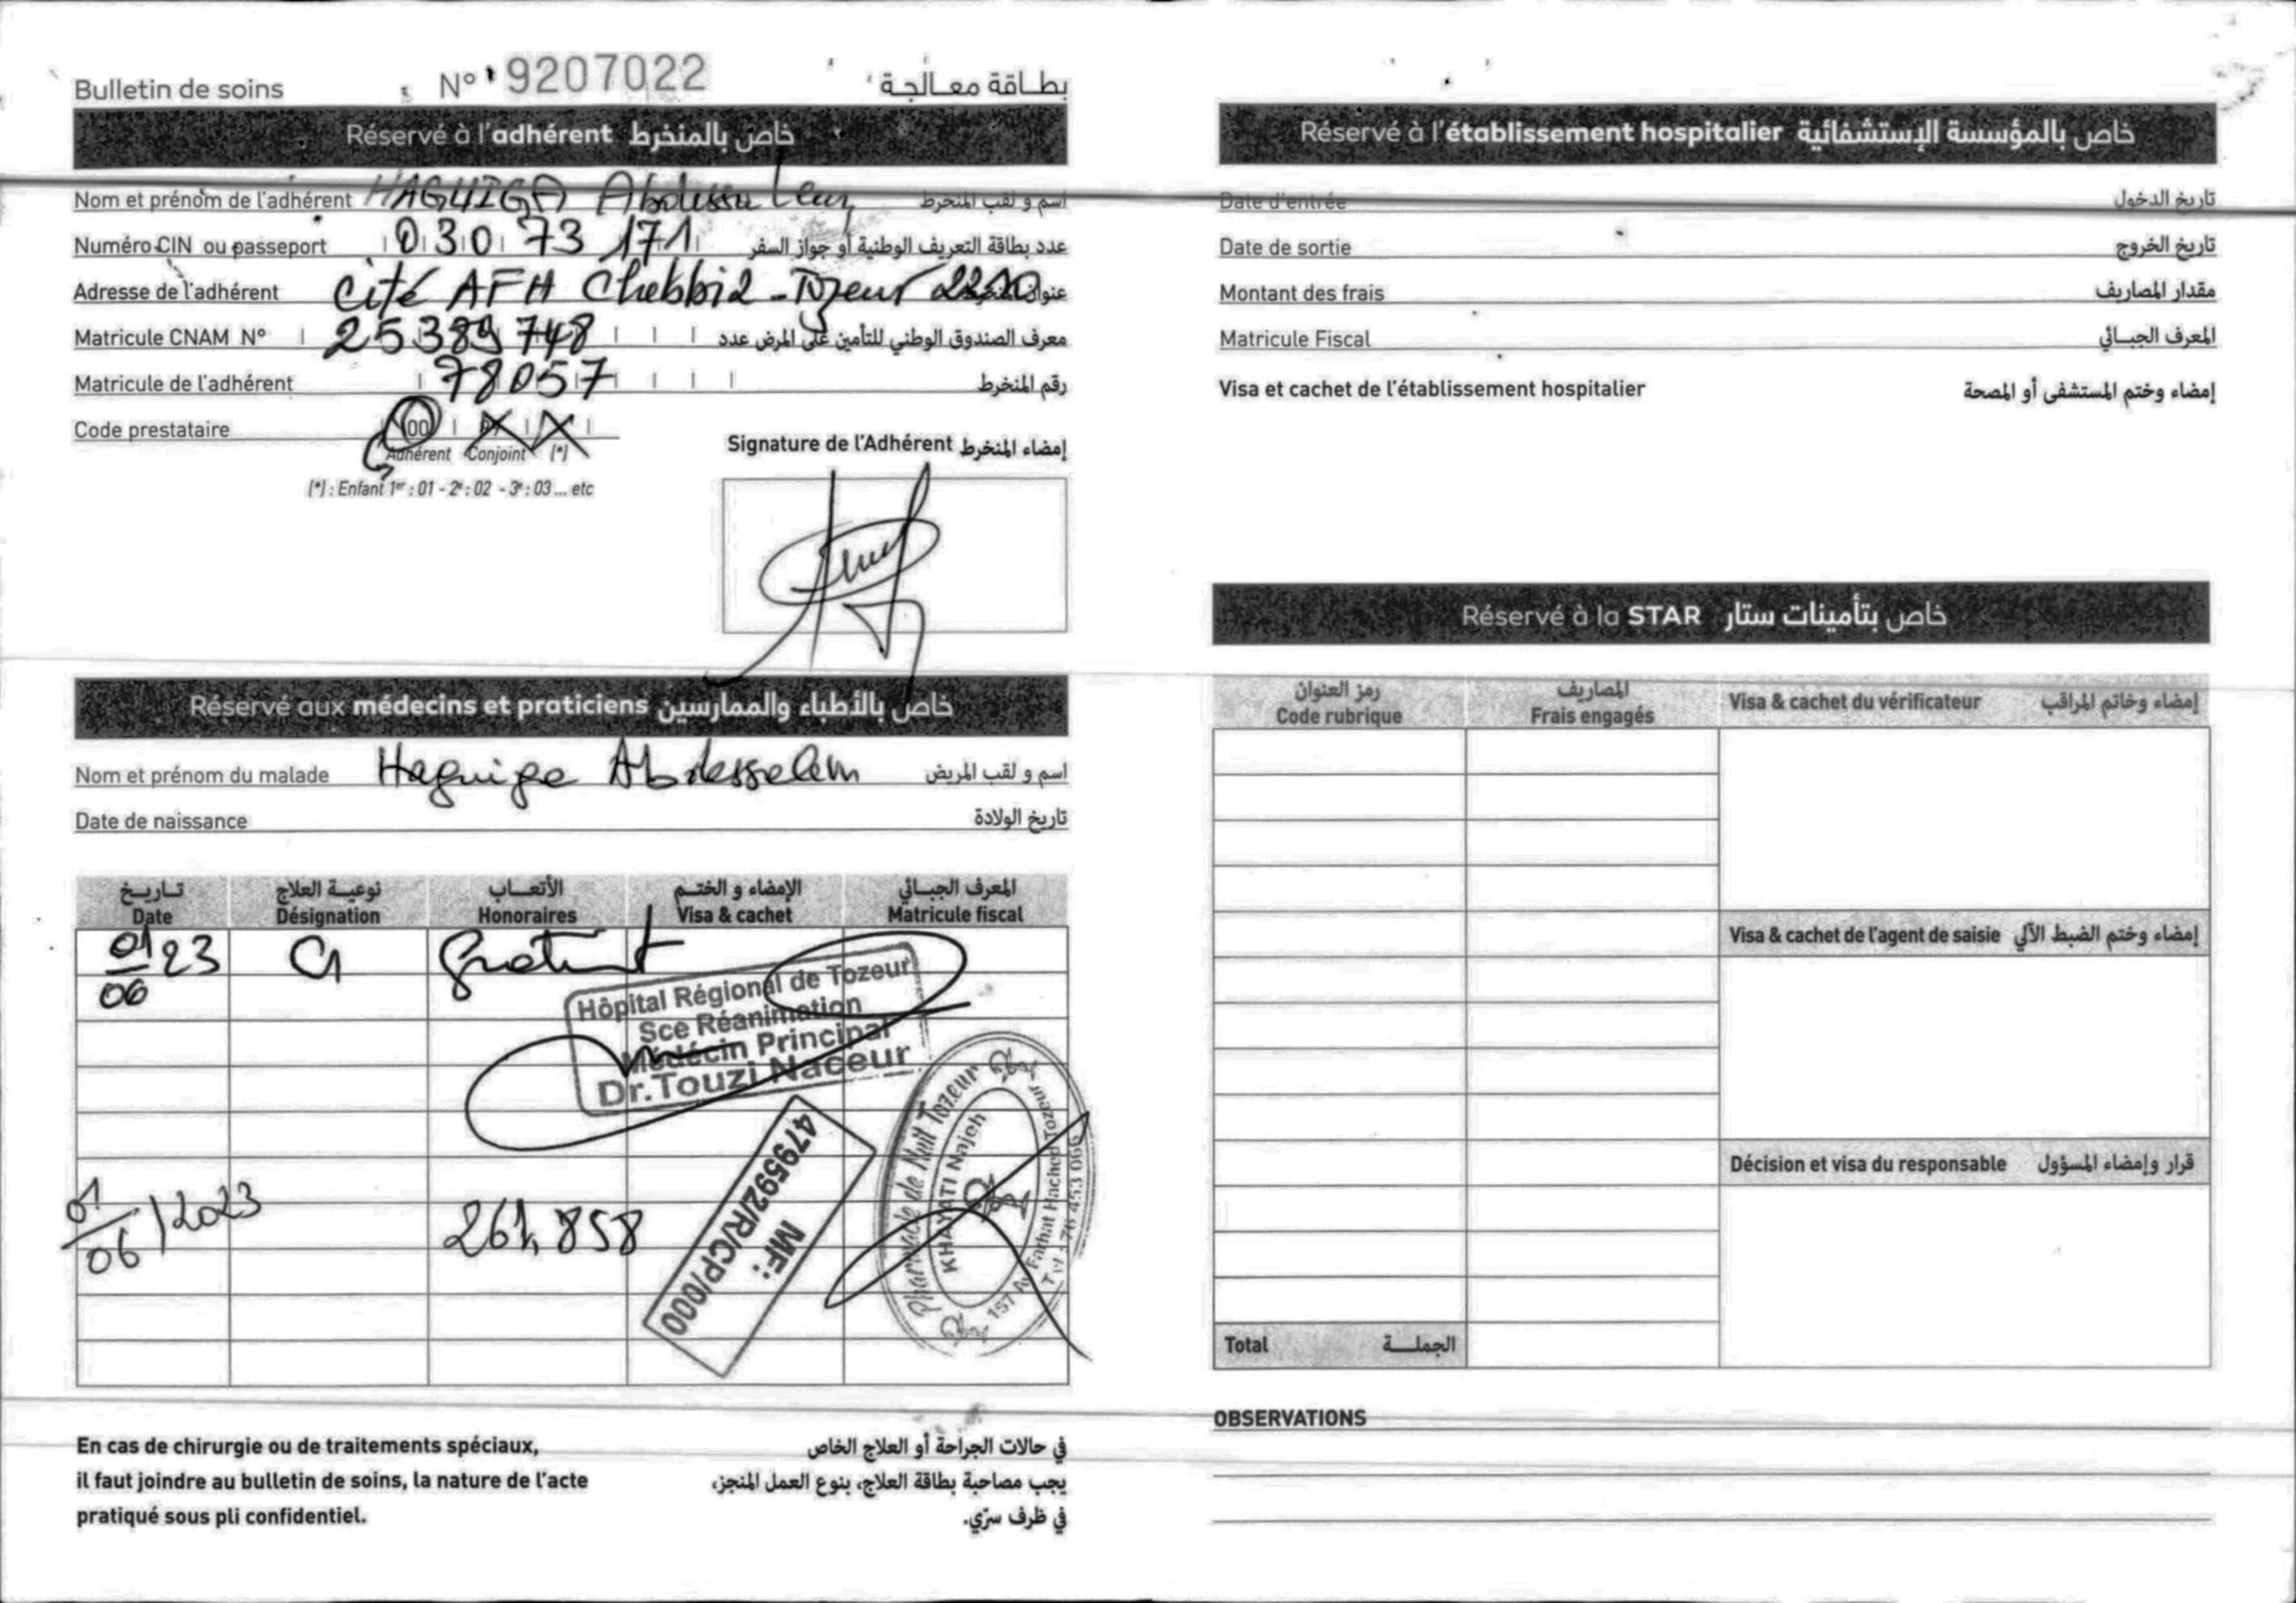 Bulletin de soins N° 9207022 بطاقة معالجة
Réservé à l'adhérent خاص بالمنخرط
Nom et prénom de l'adhérent HAGUIGA Abdessalem اسم و لقب المنخرط
Numéro CIN ou passeport 03073171 عدد بطاقة التعريف الوطنية أو جواز السفر
Adresse de l'adhérent Cité AFH Chebbia - Tozeur 2200 عنوان المنخرط
Matricule CNAM N° 25389748 معرف الصندوق الوطني للتأمين على المرض عدد
Matricule de l'adhérent 78057 رقم المنخرط
Code prestataire 00
Adhérent Conjoint (*)
(*) : Enfant 1er : 01 - 2e : 02 - 3e : 03 ... etc
Signature de l'Adhérent إمضاء المنخرط
Réservé aux médecins et praticiens خاص بالأطباء والممارسين
Nom et prénom du malade Haguiga Abdesselem اسم و لقب المريض
Date de naissance تاريخ الولادة
تاريخ نوعية العلاج الأتعاب الإمضاء و الختم المعرف الجبائي
Date Désignation Honoraires Visa & cachet Matricule fiscal
01/06 23 C1 gratuit
Hôpital Régional de Tozeur
Sce Réanimation
Médécin Principal
Dr.Touzi Naceur
01/06/2023 261,858
MF:
479592/R/CP/000
Pharmacie de Nuit Tozeur
KHAYATI Najeh
157 Av. Farhat Hached Tozeur
Tel : 76 453 066
En cas de chirurgie ou de traitements spéciaux,
il faut joindre au bulletin de soins, la nature de l'acte
pratiqué sous pli confidentiel.
في حالات الجراحة أو العلاج الخاص
يجب مصاحبة بطاقة العلاج، بنوع العمل المنجز،
في ظرف سرّي.
Réservé à l'établissement hospitalier خاص بالمؤسسة الإستشفائية
Date d'entrée تاريخ الدخول
Date de sortie تاريخ الخروج
Montant des frais مقدار المصاريف
Matricule Fiscal المعرف الجبائي
Visa et cachet de l'établissement hospitalier إمضاء وختم المستشفى أو المصحة
Réservé à la STAR خاص بتأمينات ستار
رمز العنوان المصاريف
Code rubrique Frais engagés Visa & cachet du vérificateur إمضاء وخاتم المراقب
Visa & cachet de l'agent de saisie إمضاء وختم الضبط الآلي
Décision et visa du responsable قرار وإمضاء المسؤول
Total الجملة
OBSERVATIONS